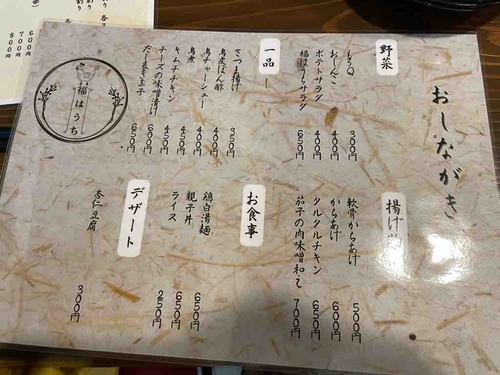 おしながき
野菜
もろQ 300円
おしんこ 400円
ポテトサラダ 400円
福はうちサラダ 650円
一品
さつま揚げ 350円
鳥皮ぽん酢 400円
鳥チャーシュー 400円
キムチチキン 450円
チーズの味噌漬け 600円
だし巻き玉子 650円
福はうち
揚げ物
軟骨からあげ 500円
からあげ 600円
タルタルチキン 650円
茄子の肉味噌和え 700円
お食事
鶏白湯麺 650円
親子丼 650円
ライス 250円
デザート
杏仁豆腐 300円
600円
700円
800円